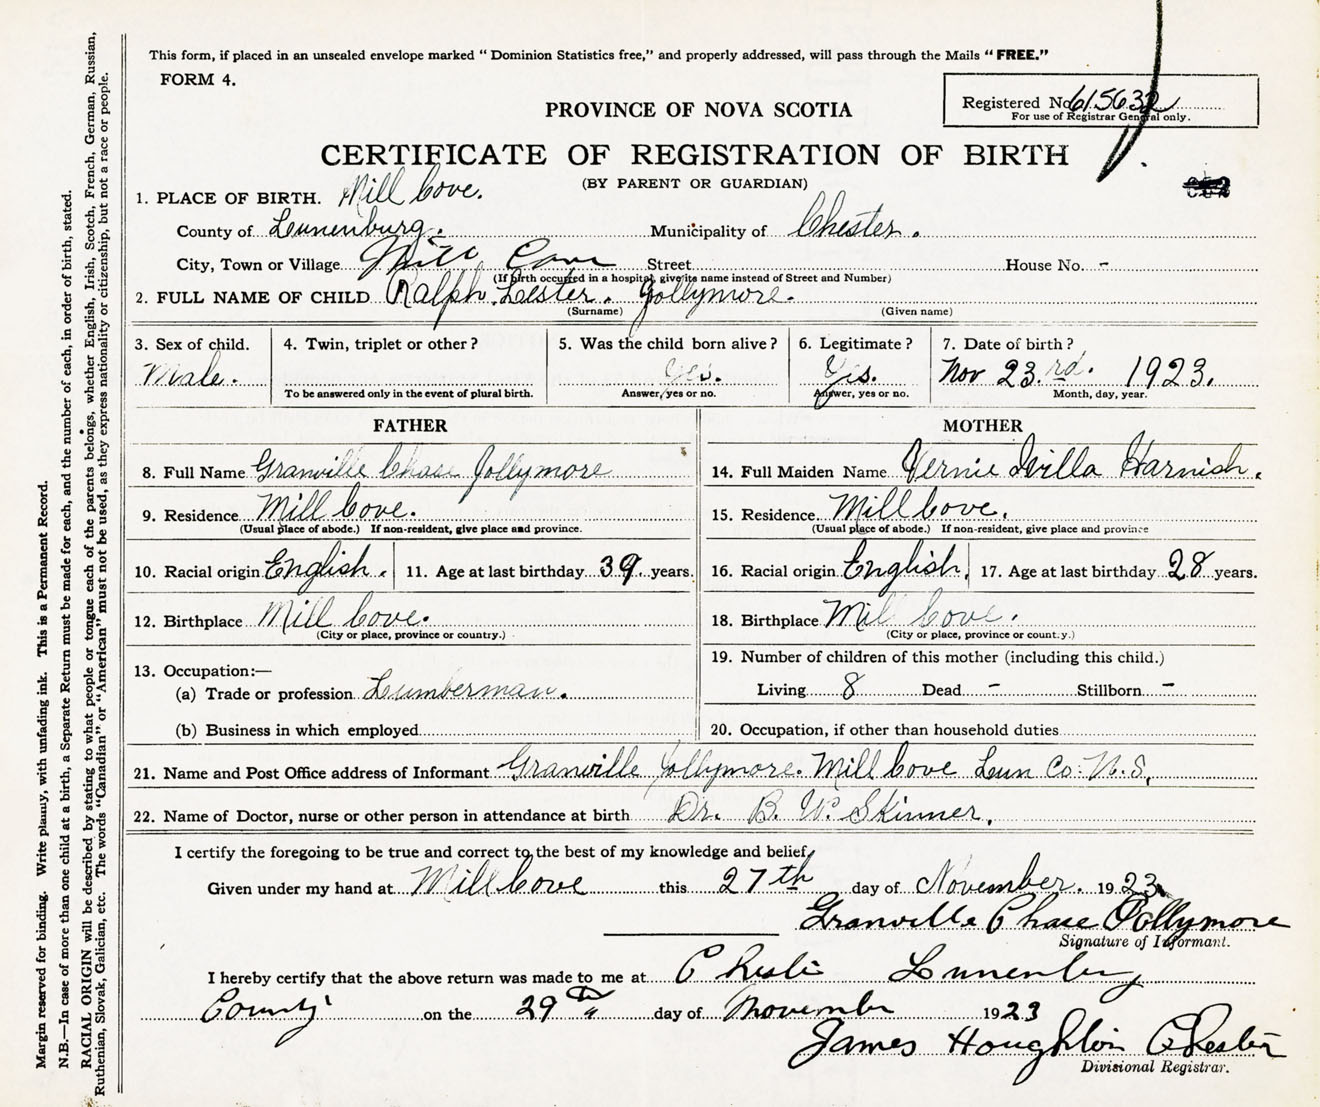 This form, if placed in an unsealed envelope marked “ Dominion Statistics free,” and properly addressed, will pass through the Mails “ FREE.”
FORM 4.
Registered No. 615632
For use of Registrar General only.
PROVINCE OF NOVA SCOTIA
CERTIFICATE OF REGISTRATION OF BIRTH
(BY PARENT OR GUARDIAN)
1. PLACE OF BIRTH. Mill Cove.
County of Lunenburg. Municipality of Chester.
City, Town or Village Mill Cove Street House No. -
(If birth occurred in a hospital, give its name instead of Street and Number)
2. FULL NAME OF CHILD Ralph Lester. Jollymore.
(Surname) (Given name)
3. Sex of child. 4. Twin, triplet or other? 5. Was the child born alive? 6. Legitimate? 7. Date of birth?
Male. Yes. Yes. Nov 23rd. 1923.
To be answered only in the event of plural birth. Answer, yes or no. Answer, yes or no. Month, day, year.
FATHER MOTHER
8. Full Name Granville Chase Jollymore 14. Full Maiden Name Vernie Willa Harnish.
9. Residence Mill Cove. 15. Residence Mill Cove.
(Usual place of abode.) If non-resident, give place and province. (Usual place of abode.) If non-resident, give place and province
10. Racial origin English. 11. Age at last birthday 39 years. 16. Racial origin English. 17. Age at last birthday 28 years.
12. Birthplace Mill Cove. 18. Birthplace Mill Cove.
(City or place, province or country.) (City or place, province or country.)
13. Occupation:— 19. Number of children of this mother (including this child.)
(a) Trade or profession Lumberman. Living 8 Dead - Stillborn -
(b) Business in which employed 20. Occupation, if other than household duties
21. Name and Post Office address of Informant Granville Jollymore. Mill Cove Lun Co. N.S.
22. Name of Doctor, nurse or other person in attendance at birth Dr. B. W. Skinner.
I certify the foregoing to be true and correct to the best of my knowledge and belief,
Given under my hand at Mill Cove this 27th day of November. 1923.
Granville Chase Jollymore
Signature of Informant.
I hereby certify that the above return was made to me at Chester Lunenburg
County on the 29th day of November 1923
James Houghton Chester
Divisional Registrar.
Margin reserved for binding. Write plainly, with unfading ink. This is a Permanent Record.
N.B.—In case of more than one child at a birth, a Separate Return must be made for each, and the number of each, in order of birth, stated.
RACIAL ORIGIN will be described by stating to what people or tongue each of the parents belongs, whether English, Irish, Scotch, French, German, Russian,
Ruthenian, Slovak, Galician, etc. The words “Canadian” or “American” must not be used, as they express nationality or citizenship, but not a race or people.